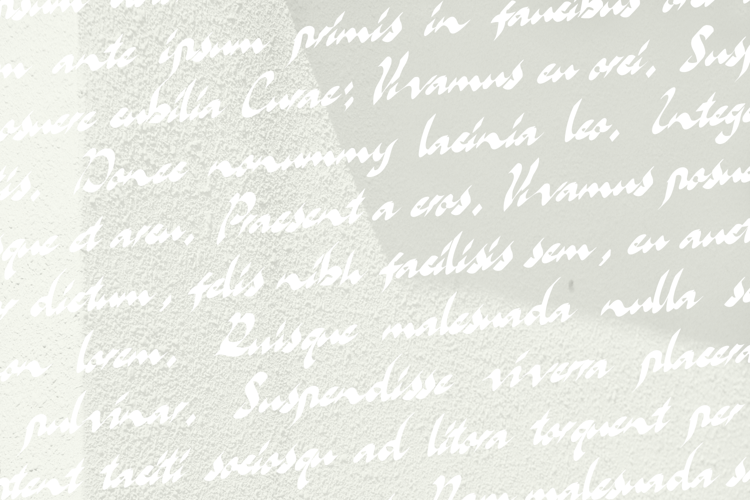 ante ipsum primis in faucibus
cubilia Curae; Vivamus eu orci. Susp
Donec nonummy lacinia leo. Integ
que et arcu. Praesent a eros. Vivamus posue
dictum, felis nibh facilisis sem, eu auct
lorem. Quisque malesuada nulla
pulvinar. Suspendisse viverra placera
taciti sociosqu ad litora torquent per
malesuada